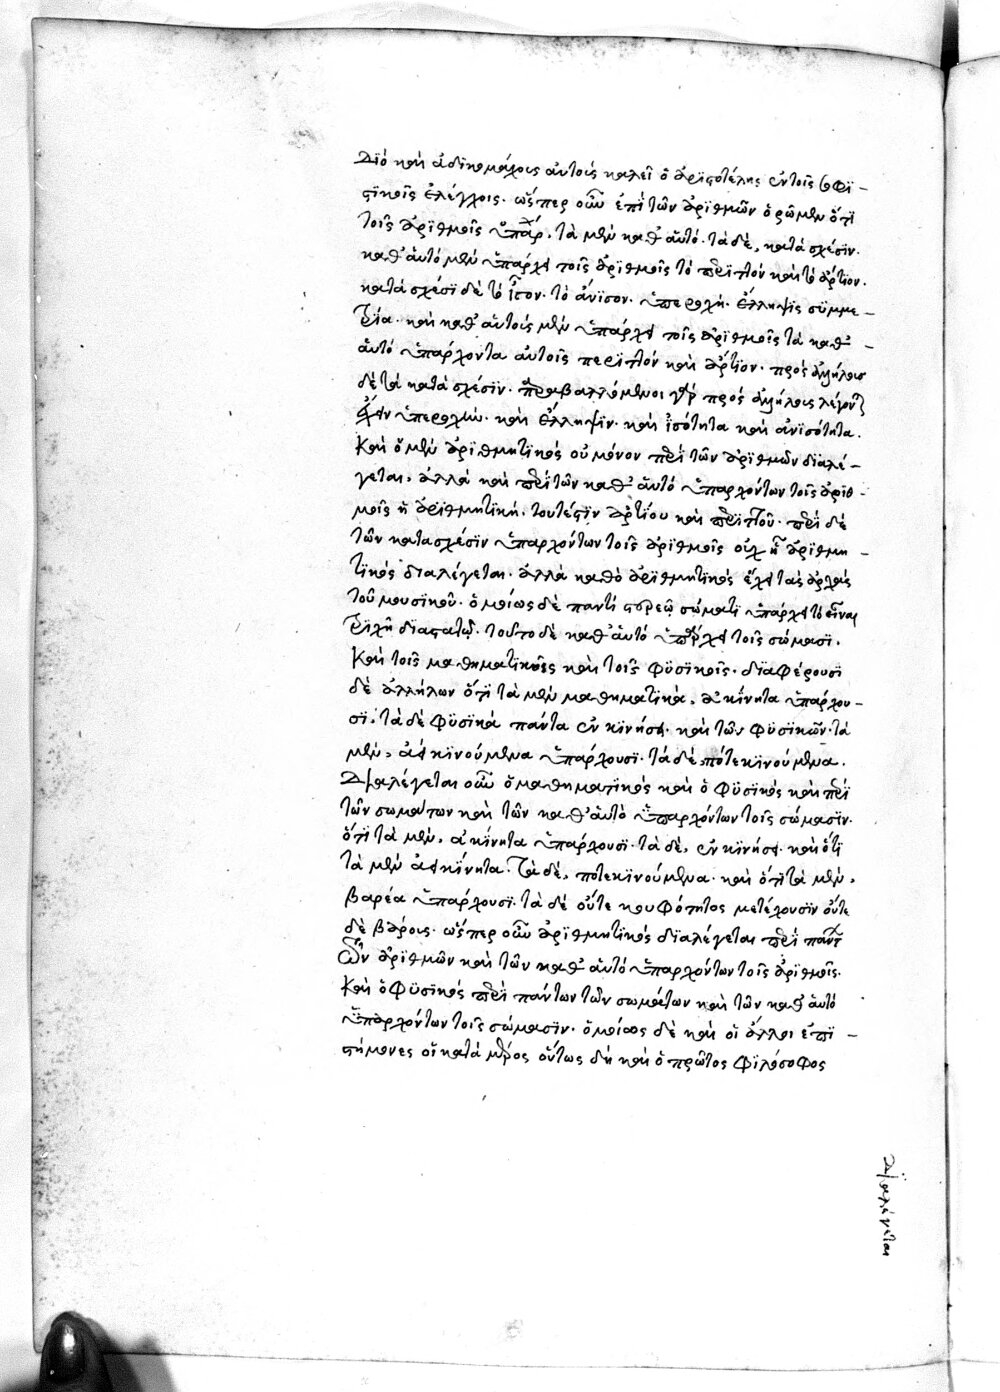 Διὸ καὶ ἀδικομάχους αὐτοὺς καλεῖ ὁ ἀριστοτέλης ἐν τοῖς σοφι-
στικοῖς ἐλέγχοις. ὥσπερ οὖν ἐπὶ τῶν ἀριθμῶν ὁρῶμεν ὅτι
τοῖς ἀριθμοῖς ὑπάρ. τὰ μὲν καθ' αὑτό. τὰ δὲ, κατὰ σχέσιν.
καθ' αὑτὸ μὲν ὑπάρχει τοῖς ἀριθμοῖς τὸ περιττὸν καὶ τὸ ἄρτιον.
κατὰ σχέσι δὲ τὸ ἴσον. τὸ ἄνισον. ὑπεροχή. ἔλλειψις σύμμε-
τρία. καὶ καθ' αὑτοὺς μὲν ὑπάρχει τοῖς ἀριθμοῖς τὰ καθ' -
αὑτὸ ὑπάρχοντα αὐτοῖς περιττὸν καὶ ἄρτιον. πρὸς ἀλλήλους
δὲ τὰ κατὰ σχέσιν. παραβαλλόμενοι γὰρ πρὸς ἀλλήλους λέγοντ
ὑπεροχὴν. καὶ ἔλλειψιν. καὶ ἰσότητα καὶ ἀνισότητα.
Καὶ ὁ μὲν ἀριθμητικὸς οὐ μόνον περὶ τῶν ἀριθμῶν διαλέ-
γεται, ἀλλὰ καὶ περὶ τῶν καθ' αὑτὸ ὑπαρχόντων τοῖς ἀριθ-
μοῖς ἡ ἀριθμητική. τουτέστιν ἀρτίου καὶ περιττοῦ. περὶ δὲ
τῶν κατὰ σχέσιν ὑπαρχόντων τοῖς ἀριθμοῖς οὐχ ἧ ἀριθμη-
τικὸς διαλέγεται. ἀλλὰ καθὸ ἀριθμητικὸς ἔχει τὰς ἀρχὰς
τοῦ μουσικοῦ. ὁμοίως δὲ παντὶ στερεῷ σώματι ὑπάρχει τὸ εἶναι
τριχῆ διαστατῷ. τοῦτο δὲ καθ' αὑτὸ ὑπάρχει τοῖς σώμασι.
Καὶ τοῖς μαθηματικοῖς καὶ τοῖς φυσικοῖς. διαφέρουσι
δὲ ἀλλήλων ὅτι τὰ μὲν μαθηματικὰ, ἀκίνητα ὑπάρχου-
σι. τὰ δὲ φυσικὰ πάντα ἐν κινήσει. καὶ τῶν φυσικῶν. τὰ
μὲν, ἀεικινούμενα ὑπάρχουσι. τὰ δὲ, ποτὲ κινούμενα.
Διαλέγεται οὖν ὁ μαθηματικὸς καὶ ὁ φυσικὸς καὶ περὶ
τῶν σωμάτων καὶ τῶν καθ' αὑτὸ ὑπαρχόντων τοῖς σώμασιν.
ὅτι τὰ μὲν, ἀκίνητα ὑπάρχουσι. τὰ δὲ, ἐν κινήσει. καὶ ὅτι
τὰ μὲν ἀεικίνητα. τὰ δὲ, ποτὲ κινούμενα. καὶ ὅτι τὰ μὲν,
βαρέα ὑπάρχουσι. τὰ δὲ οὔτε κουφότητος μετέχουσιν οὔτε
δὲ βάρους. ὥσπερ οὖν ἀριθμητικὸς διαλέγεται περὶ πάντ
ων ἀριθμῶν καὶ τῶν καθ' αὑτὸ ὑπαρχόντων τοῖς ἀριθμοῖς.
Καὶ ὁ φυσικὸς περὶ πάντων τῶν σωμάτων καὶ τῶν καθ' αὑτὸ
ὑπαρχόντων τοῖς σώμασιν. ὁμοίως δὲ καὶ οἱ ἄλλοι ἐπι-
στήμονες οἱ κατὰ μέρος οὕτως δὴ καὶ ὁ πρῶτος φιλόσοφος
διαλέγεται